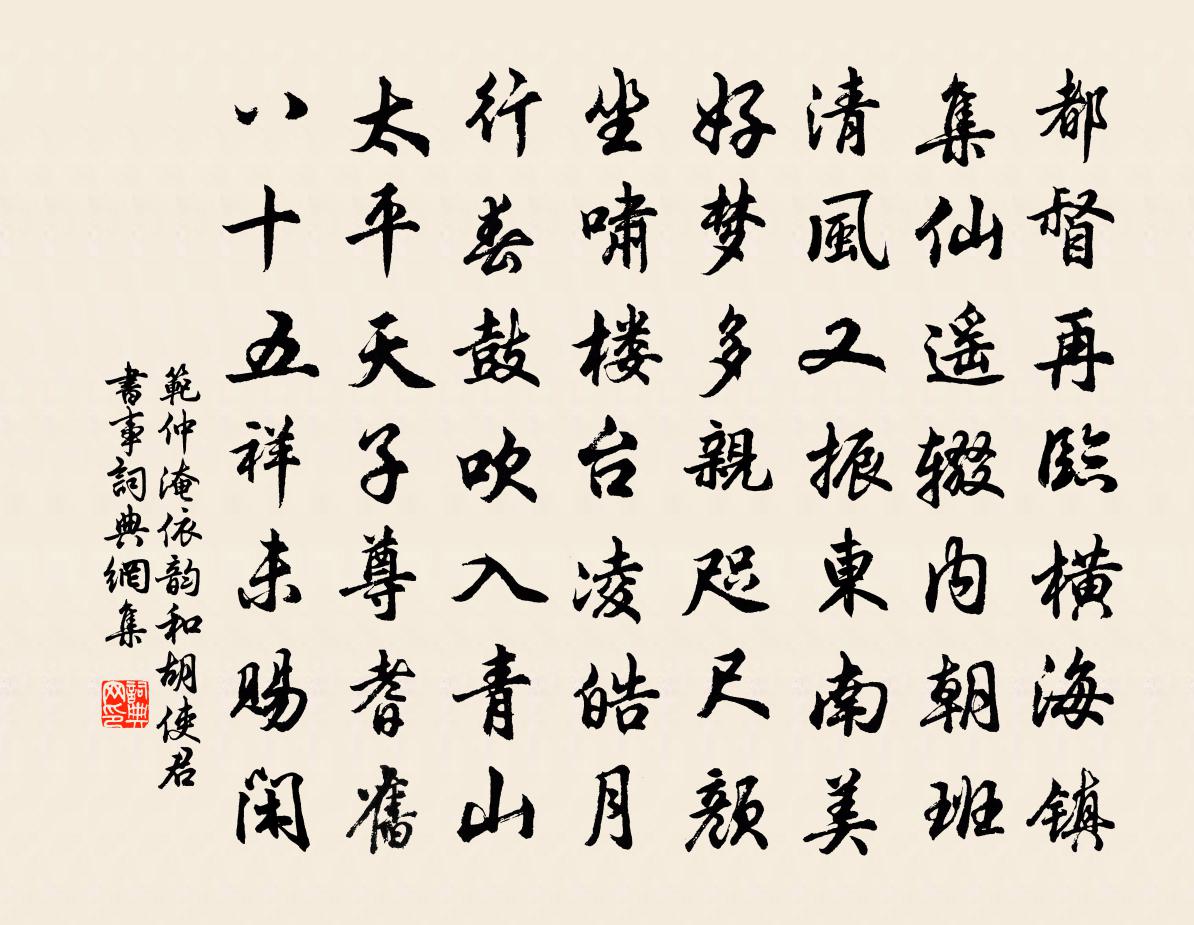 都督再臨橫海鎮
集仙遥辍内朝班
清風又振東南美
好梦多親咫尺顏
坐嘯楼台凌皓月
行春鼓吹入青山
太平天子尊耆舊
八十五祥未赐閑
範仲淹依韵和胡使君
書事詞典網集
詞典网印